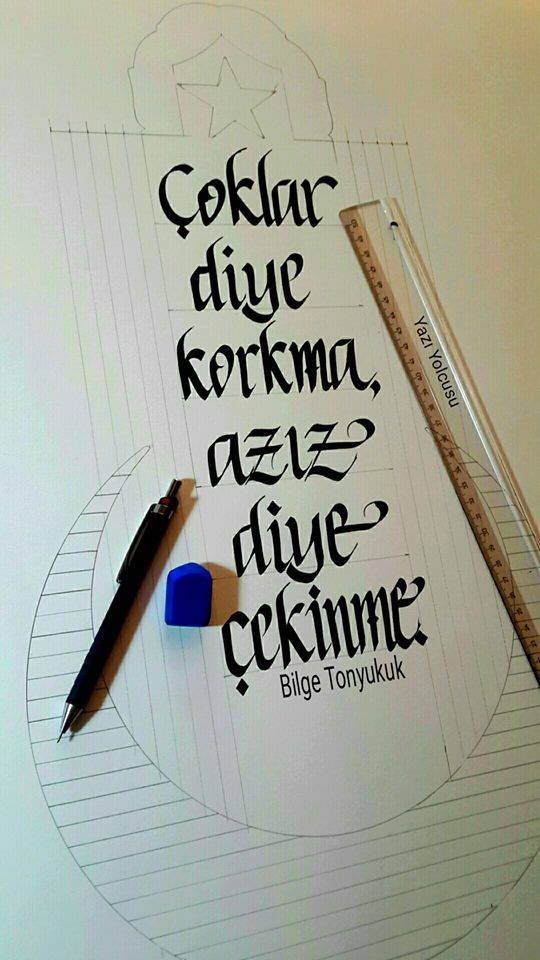 Çoklar
diye
korkma,
azız
diye
çekinme.
Bilge Tonyukuk
Yazı Yolcusu